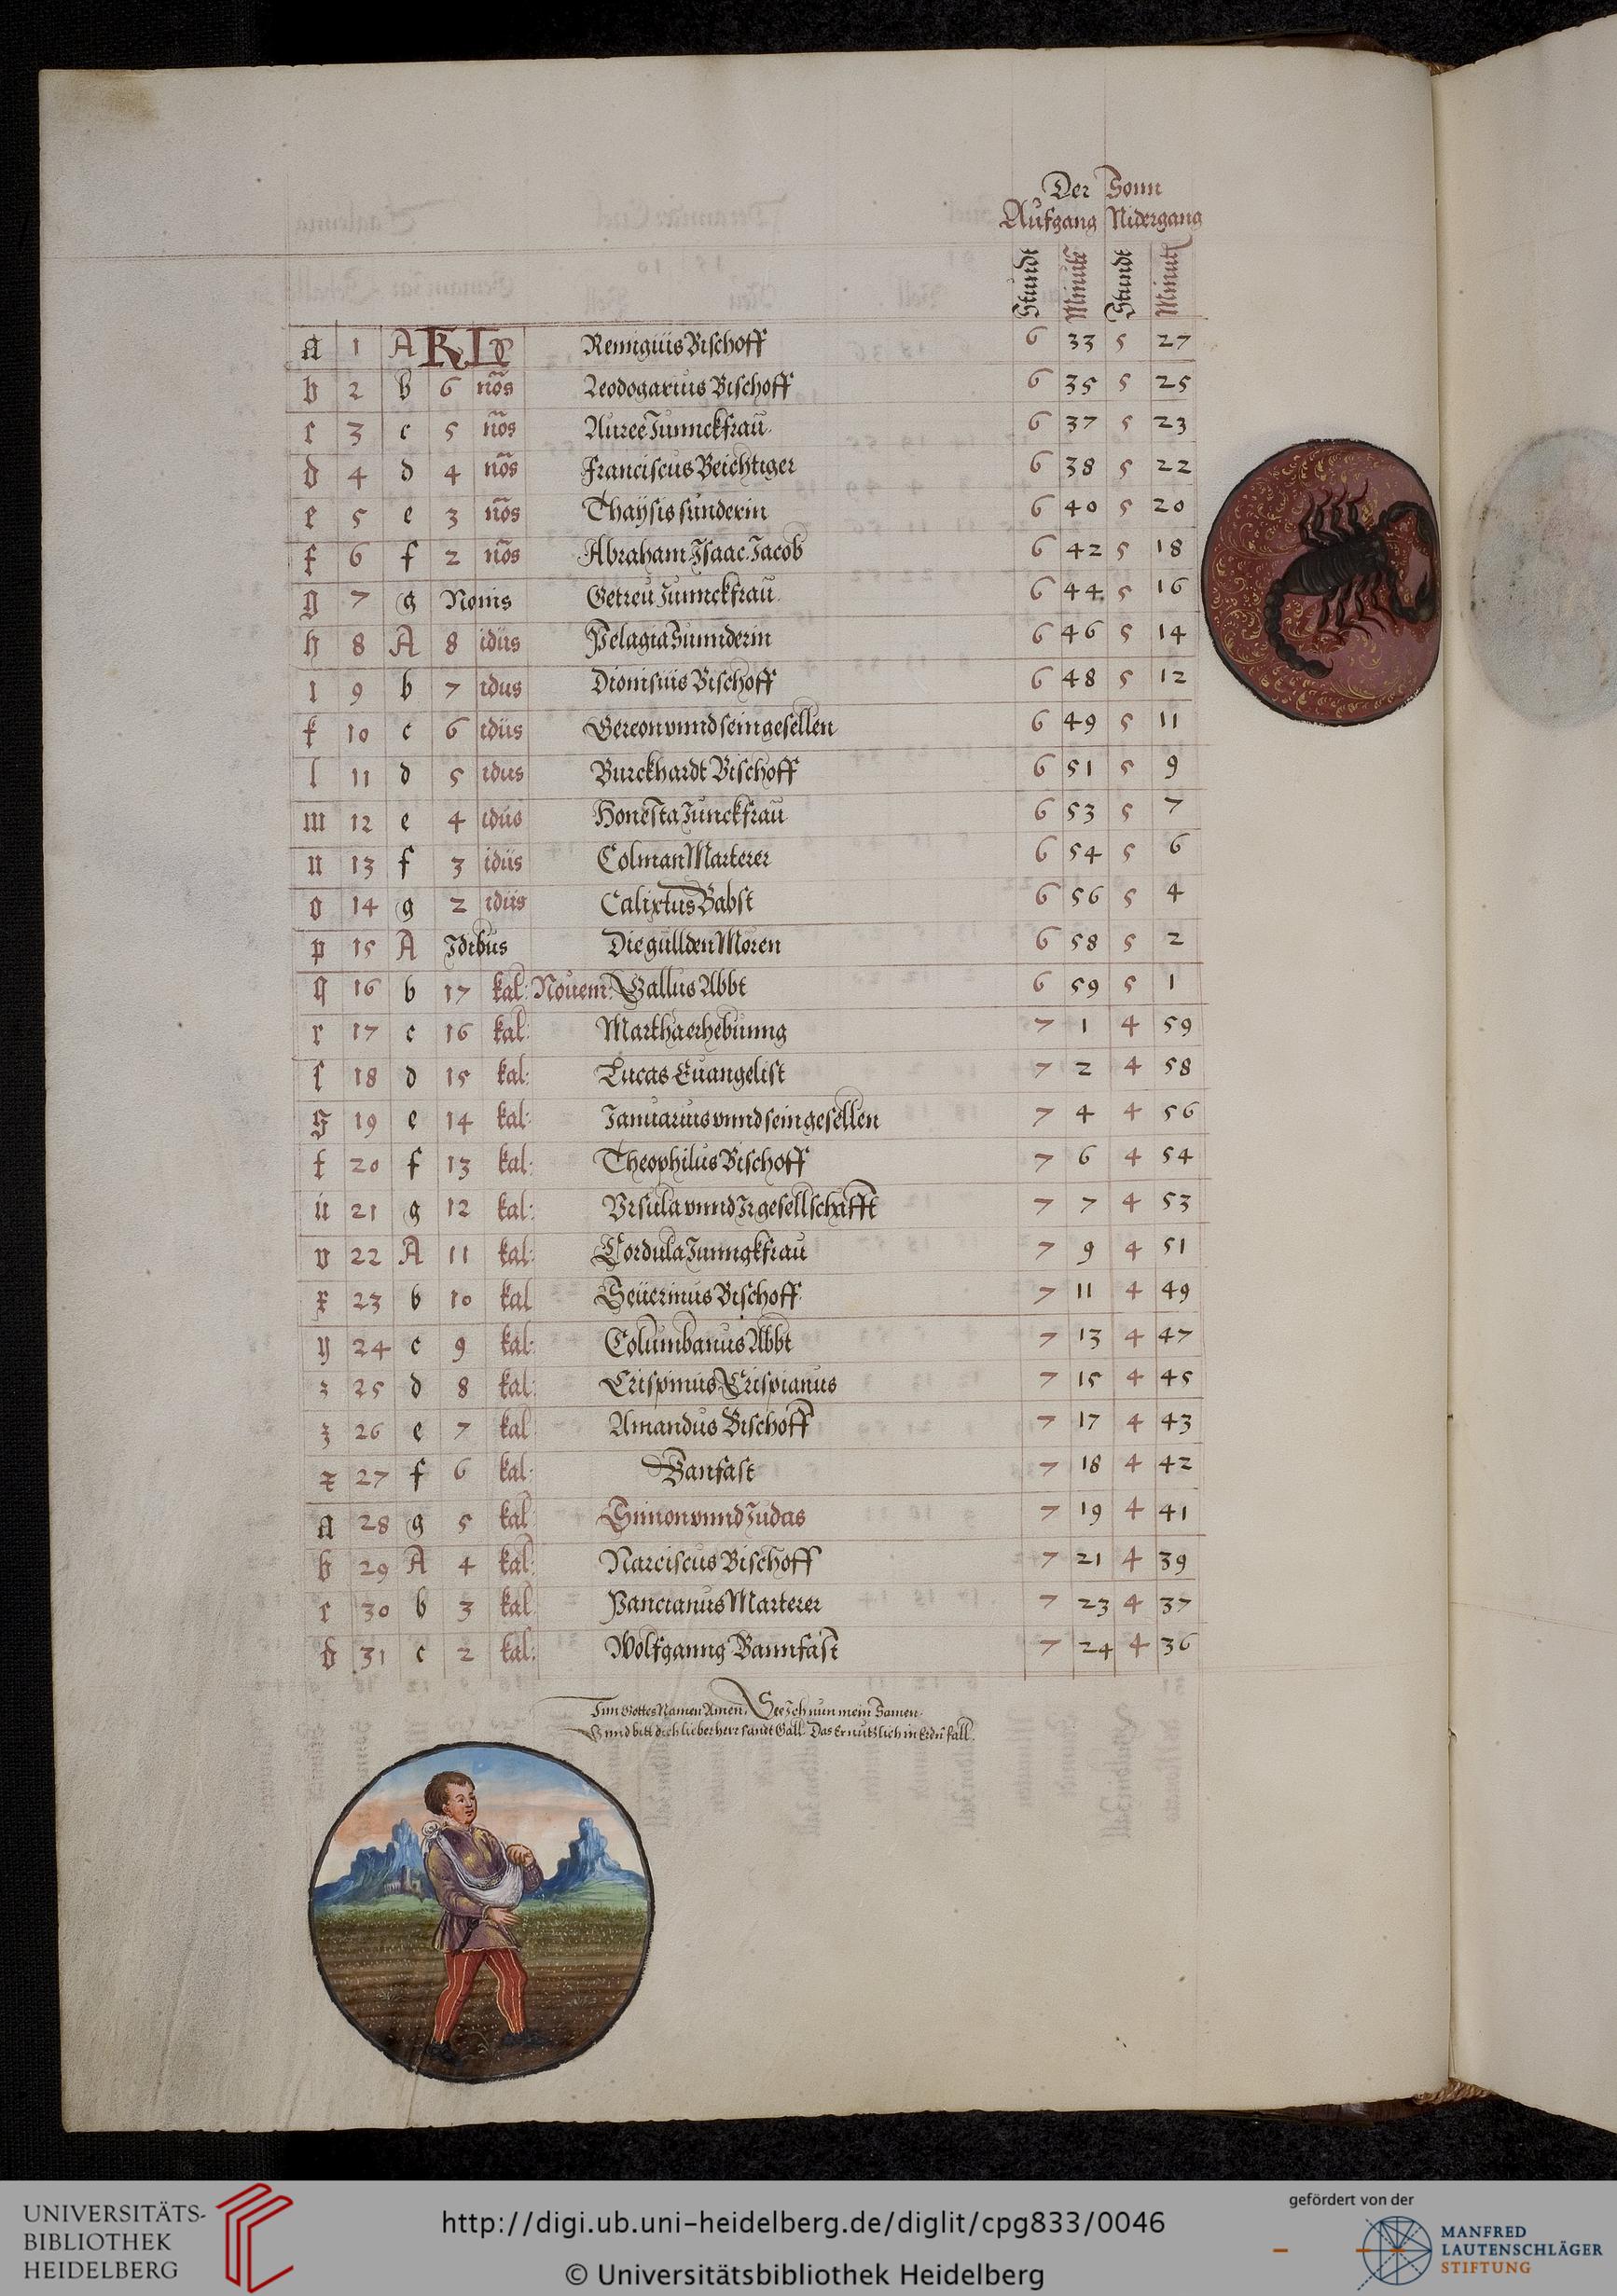 Der Sonn
Aufgang Nidergang
Stundt Minute Stundt Minut
a 1 A KL Remigius Bischoff 6 33 5 27
b 2 b 6 nõs Leodogarius Bischoff 6 35 5 25
c 3 c 5 nõs Auree Junnckfrau 6 37 5 23
d 4 d 4 nõs Franciscus Beichtiger 6 38 5 22
e 5 e 3 nõs Thaÿsis sünderin 6 40 5 20
f 6 f 2 nõs Abraham Isaac Jacob 6 42 5 18
g 7 g Nonis Getreu Junnckfrau 6 44 5 16
h 8 A 8 idus Pelagia Sunnderin 6 46 5 14
i 9 b 7 idus Dionisius Bischoff 6 48 5 12
k 10 c 6 idus Gereon vnnd sein gesellen 6 49 5 11
l 11 d 5 idus Burckhardt Bischoff 6 51 5 9
m 12 e 4 idus Honesta Junckfrau 6 53 5 7
n 13 f 3 idus Colman Marterer 6 54 5 6
o 14 g 2 idus Calixtus Babst 6 56 5 4
p 15 A Idibus Die güllden Moren 6 58 5 2
q 16 b 17 kal: Nouem: Gallus Abbt 6 59 5 1
r 17 c 16 kal: Martha erhebunng 7 1 4 59
ſ 18 d 15 kal: Lucas Euangelist 7 2 4 58
s 19 e 14 kal: Januarius vnnd sein gesellen 7 4 4 56
t 20 f 13 kal: Theophilus Bischoff 7 6 4 54
u 21 g 12 kal: Vrsula vnnd Ir gesellschafft 7 7 4 53
v 22 A 11 kal: Cordula Junngkfrau 7 9 4 51
x 23 b 10 kal Seuerinus Bischoff 7 11 4 49
y 24 c 9 kal: Columbanus Abbt 7 13 4 47
z 25 d 8 kal: Crispinus Crispianus 7 15 4 45
z 26 e 7 kal Amandus Bischoff 7 17 4 43
27 f 6 kal: Banfast 7 18 4 42
a 28 g 5 kal: Simon vnnd Judas 7 19 4 41
b 29 A 4 kal: Narciscus Bischoff 7 21 4 39
c 30 b 3 kal Pancianus Marterer 7 23 4 37
d 31 c 2 kal: Wolfganng Bannfast 7 24 4 36
Inn Gottes Namen Amen, See Ich nun mein Samen.
Vnnd bitt dich lieber herr sandt Gall. Das er nutzlich in Erdn fall.
UNIVERSITÄTS-
BIBLIOTHEK
HEIDELBERG
http://digi.ub.uni-heidelberg.de/diglit/cpg833/0046
© Universitätsbibliothek Heidelberg
gefördert von der
MANFRED
LAUTENSCHLÄGER
STIFTUNG